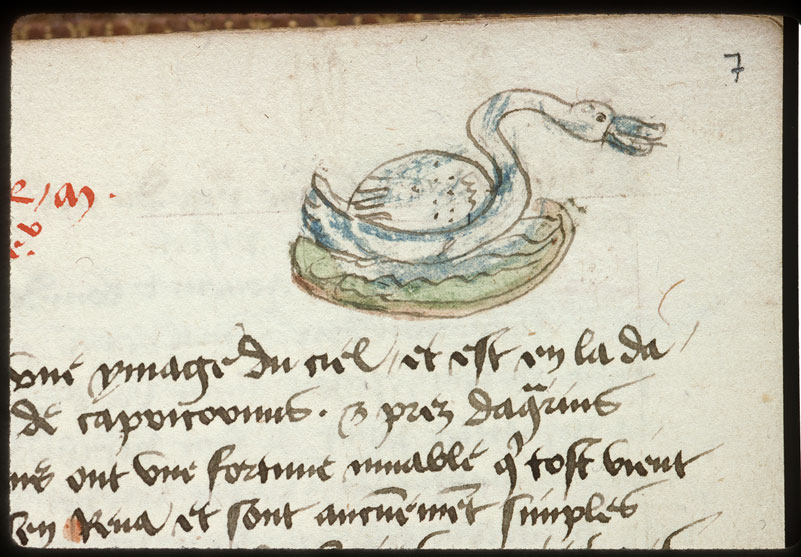 7
vne ymage du ciel / et est en la da /
de capricornus . & prez daqrius
ont vne fortune muable q tost vient
en Reua / et sont aucunemet simples